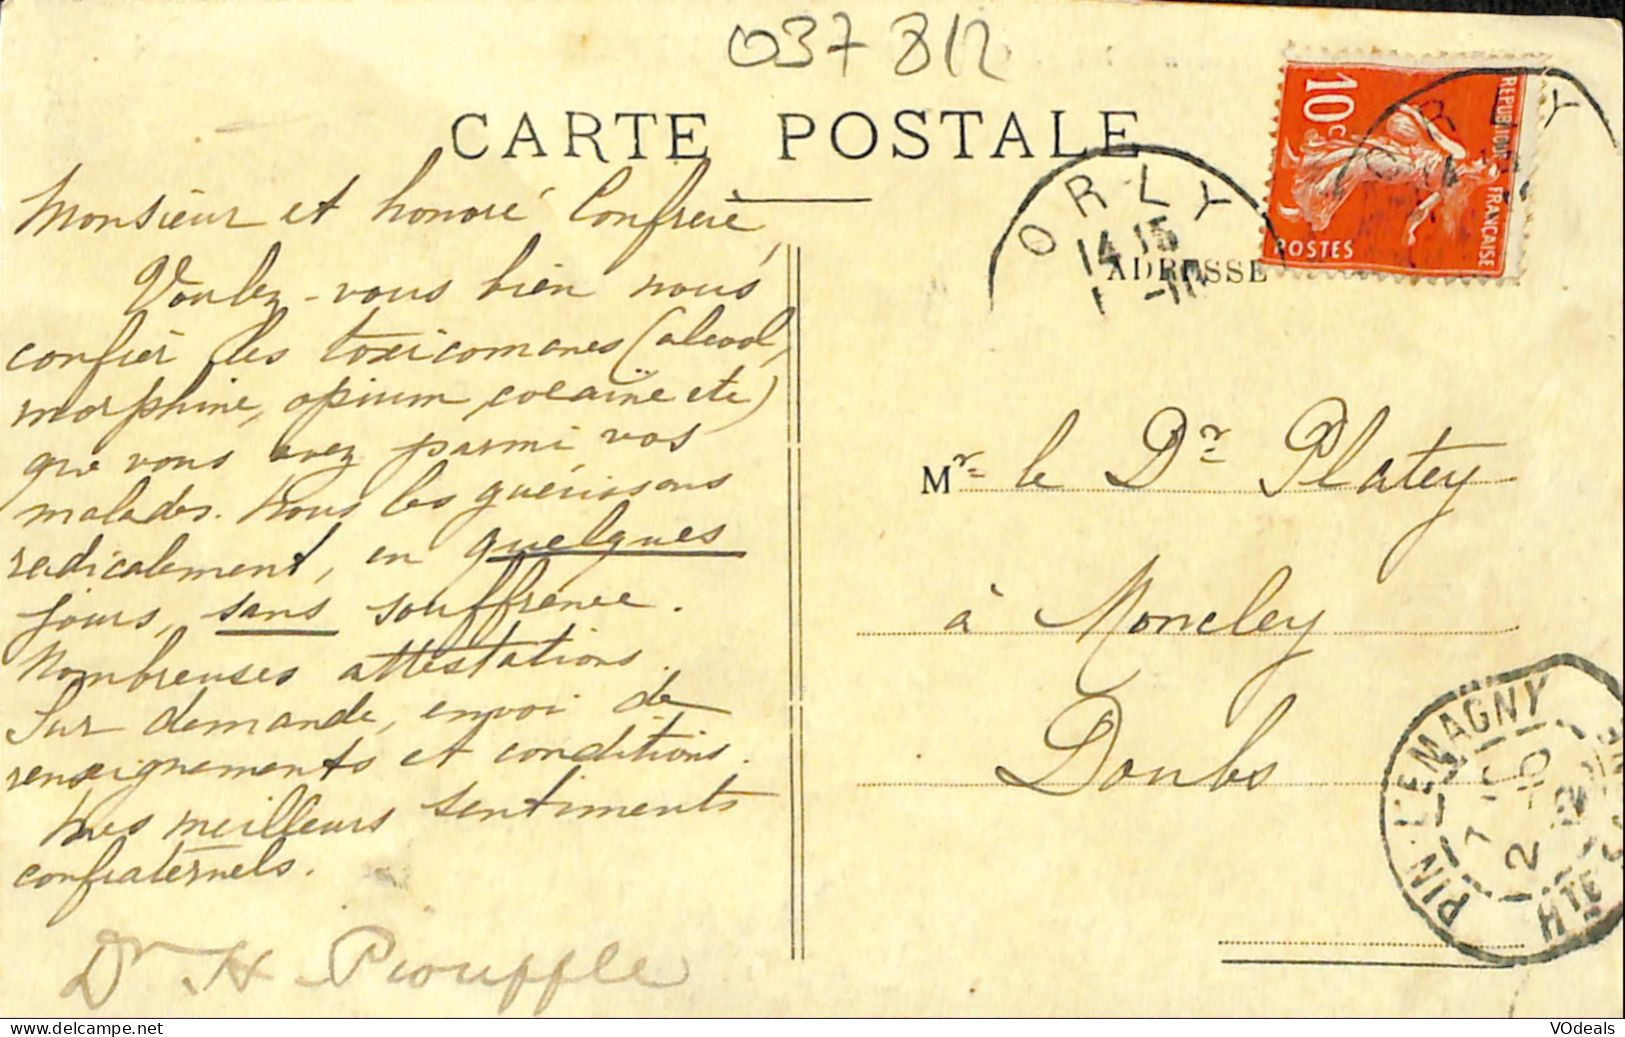 037 812
CARTE POSTALE
REPUBLIQUE FRANÇAISE
10 c
POSTES
ORLY
14 15
ADRESSE
Monsieur et honoré Confrère,
Voulez-vous bien nous
confier les toxicomanes (alcool,
morphine, opium, cocaïne etc)
que vous avez parmi vos
malades. Nous les guérissons
radicalement, en quelques
jours, sans souffrance.
Nombreuses attestations.
Sur demande, envoi de
renseignements et conditions.
Mes meilleurs sentiments
confraternels.
Dr H Piouffle
Mr le Dr Platey
à Moncley
Doubs
PIN-L'EMAGNY
HTE
7 10
2 -10
12
VOdeals
https://www.delcampe.net